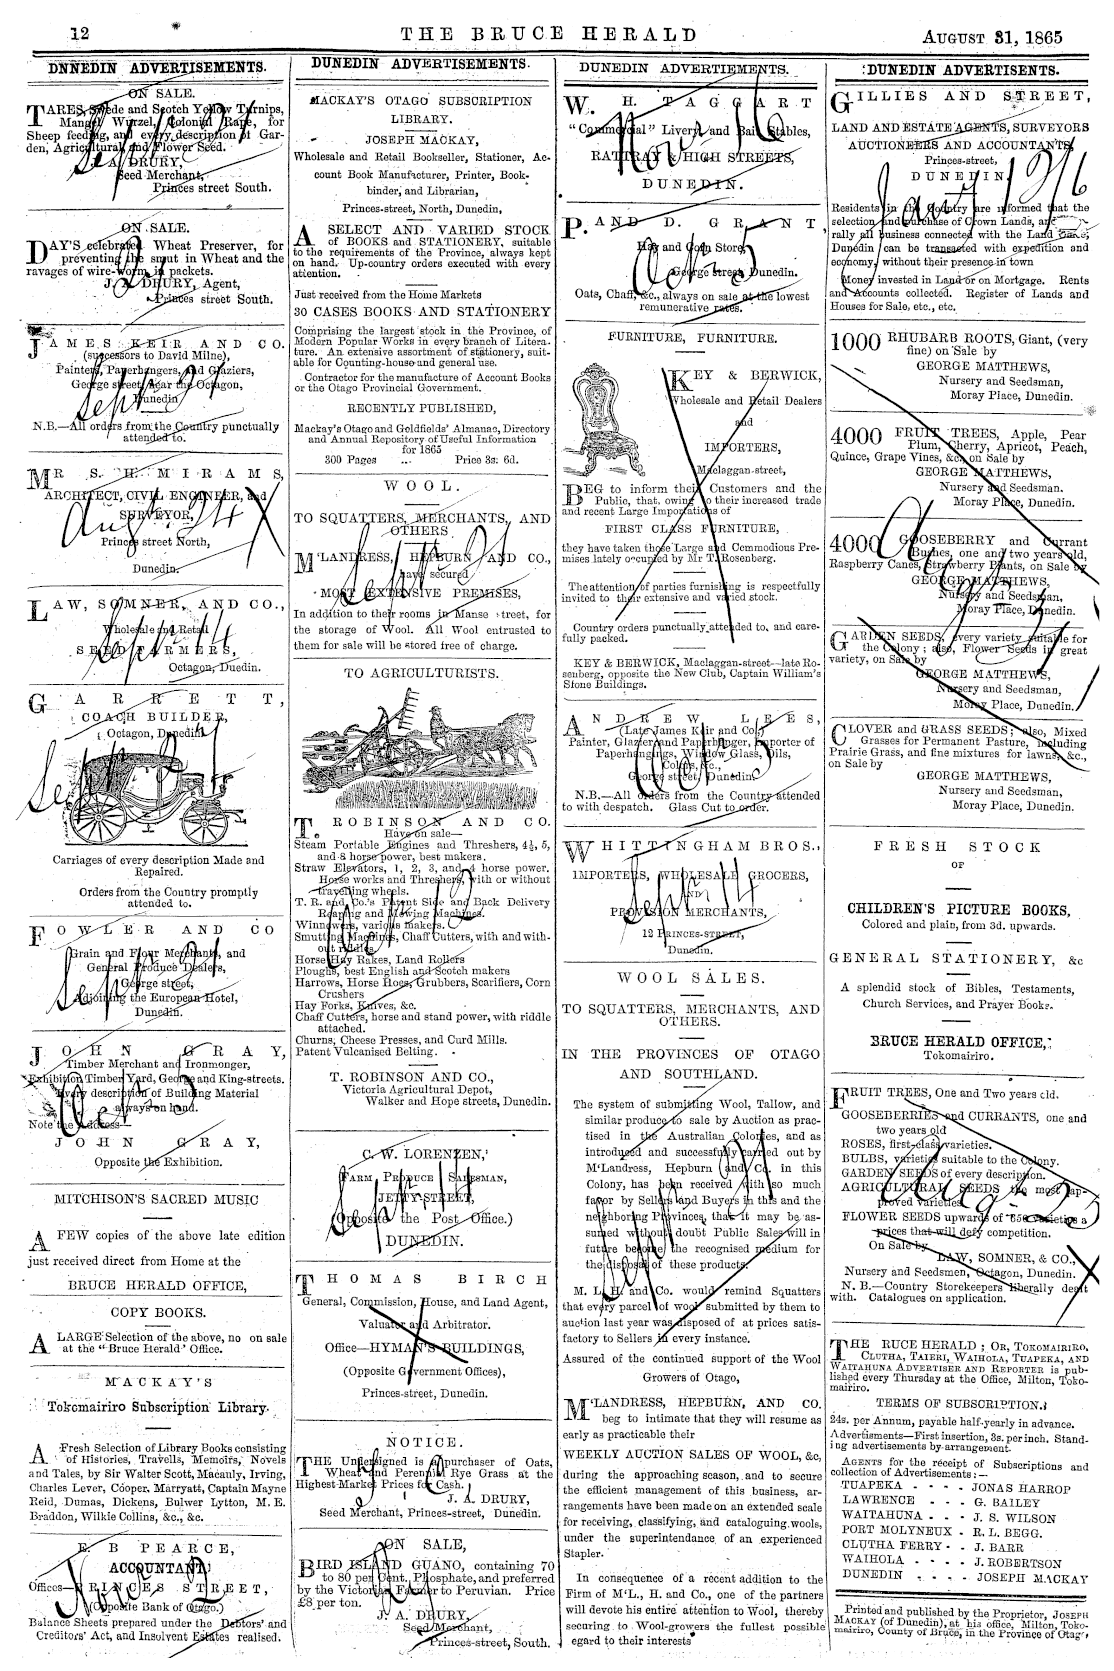 12
THE BRUCE HERALD
AUGUST 31, 1865
DNNEDIN ADVERTISEMENTS.
ON SALE.
TARES, Swede and Scotch Yellow Turnips,
Mangel Wurzel, Colonial Rape, for
Sheep feeding, and every description of Gar-
den, Agricultural and Flower Seed.
J. A. DRURY,
Seed Merchant,
Princes street South.
Sept 21
ON SALE.
DAY'S celebrated Wheat Preserver, for
preventing the smut in Wheat and the
ravages of wire-worm, in packets.
J. A. DRURY, Agent,
Princes street South.
JAMES KEIR AND CO.
(successors to David Milne),
Painters, Paperhangers, and Glaziers,
George street, near the Octagon,
Dunedin
Sept 21
N.B.—All orders from the Country punctually
attended to.
MR S. H. MIRAMS,
ARCHITECT, CIVIL ENGINEER, and
SURVEYOR,
Princes street North,
Dunedin.
Aug. 24 X
LAW, SOMNER, AND CO.,
Wholesale and Retail
SEED FARMERS,
Octagon, Duedin.
Sept 14
GARRETT,
COACH BUILDER,
Octagon, Dunedin
Sept 21
Carriages of every description Made and
Repaired.
Orders from the Country promptly
attended to.
FOWLER AND CO
Grain and Flour Merchants, and
General Produce Dealers,
George street,
Adjoining the European Hotel,
Dunedin.
Sept 21
JOHN GRAY,
Timber Merchant and Ironmonger,
Exhibition Timber Yard, George and King-streets.
Every description of Building Material
always on hand.
Note the Address—
JOHN GRAY,
Opposite the Exhibition.
Oct 5
MITCHISON'S SACRED MUSIC
A FEW copies of the above late edition
just received direct from Home at the
BRUCE HERALD OFFICE,
COPY BOOKS.
A LARGE Selection of the above, no on sale
at the "Bruce Herald' Office.
MACKAY'S
Tokomairiro Subscription Library.
A Fresh Selection of Library Books consisting
of Histories, Travells, Memoirs, Novels
and Tales, by Sir Walter Scott, Macauly, Irving,
Charles Lever, Cooper, Marryatt, Captain Mayne
Reid, Dumas, Dickens, Bulwer Lytton, M. E.
Braddon, Wilkie Collins, &c., &c.
E. B PEARCE,
ACCOUNTANT,
Offices—PRINCES STREET,
(Opposite Bank of Otago.)
Balance Sheets prepared under the Debtors' and
Creditors' Act, and Insolvent Estates realised.
Novr 2
DUNEDIN ADVERTISEMENTS.
MACKAY'S OTAGO SUBSCRIPTION
LIBRARY.
JOSEPH MACKAY,
Wholesale and Retail Bookseller, Stationer, Ac-
count Book Manufacturer, Printer, Book-
binder, and Librarian,
Princes-street, North, Dunedin,
A SELECT AND VARIED STOCK
of BOOKS and STATIONERY, suitable
to the requirements of the Province, always kept
on hand. Up-country orders executed with every
attention.
Just received from the Home Markets
30 CASES BOOKS AND STATIONERY
Comprising the largest stock in the Province, of
Modern Popular Works in every branch of Litera-
ture. An extensive assortment of stationery, suit-
able for Counting-house and general use.
Contractor for the manufacture of Account Books
or the Otago Provincial Government.
RECENTLY PUBLISHED,
Mackay's Otago and Goldfields' Almanac, Directory
and Annual Repository of Useful Information
for 1865
300 Pages ... Price 3s. 6d.
WOOL.
TO SQUATTERS, MERCHANTS, AND
OTHERS
M'LANDRESS, HEPBURN AND CO.,
have secured
MOST EXTENSIVE PREMISES,
Sept 21
In addition to their rooms in Manse street, for
the storage of Wool. All Wool entrusted to
them for sale will be stored free of charge.
TO AGRICULTURISTS.
T. ROBINSON AND CO.
Have on sale—
Steam Portable Engines and Threshers, 4½, 5,
and 8 horse power, best makers.
Straw Elevators, 1, 2, 3, and 4 horse power.
Horse works and Threshers, with or without
travelling wheels.
T. R. and Co.'s Patent Side and Back Delivery
Reaping and Mowing Machines.
Winnowers, various makers.
Smutting Machines, Chaff Cutters, with and with-
out riddles
Horse Hay Rakes, Land Rollers
Ploughs, best English and Scotch makers
Harrows, Horse Hoes, Grubbers, Scarifiers, Corn
Crushers
Hay Forks, Knives, &c.
Chaff Cutters, horse and stand power, with riddle
attached.
Churns, Cheese Presses, and Curd Mills.
Patent Vulcanised Belting.
Oct 12
T. ROBINSON AND CO.,
Victoria Agricultural Depot,
Walker and Hope streets, Dunedin.
C. W. LORENZEN,
FARM PRODUCE SALESMAN,
JETTY-STREET,
(Opposite the Post Office.)
DUNEDIN.
Sept 14
THOMAS BIRCH
General, Commission, House, and Land Agent,
Valuator and Arbitrator.
Office—HYMAN'S BUILDINGS,
(Opposite Government Offices),
Princes-street, Dunedin.
NOTICE.
THE Undersigned is a purchaser of Oats,
Wheat and Perennial Rye Grass at the
Highest Market Prices for Cash.
J. A. DRURY,
Seed Merchant, Princes-street, Dunedin.
ON SALE,
BIRD ISLAND GUANO, containing 70
to 80 per Cent, Phosphate, and preferred
by the Victorian Farmer to Peruvian. Price
£8 per ton.
J. A. DRURY,
Seed Merchant,
Princes-street, South.
DUNEDIN ADVERTIEMENTS.
W. H. TAGGART
"Commercial" Livery and Bait Stables,
RATTRAY & HIGH STREETS,
DUNEDIN.
Novr 16
P. AND D. GRANT,
Hay and Corn Store,
George street, Dunedin.
Oats, Chaff, &c., always on sale at the lowest
remunerative rates.
Oct 5
FURNITURE, FURNITURE.
KEY & BERWICK,
Wholesale and Retail Dealers
and
IMPORTERS,
Maclaggan-street,
BEG to inform their Customers and the
Public, that, owing to their increased trade
and recent Large Importations of
FIRST CLASS FURNITURE,
they have taken those Large and Commodious Pre-
mises lately occupied by Mr T. Rosenberg.
The attention of parties furnishing is respectfully
invited to their extensive and varied stock.
Country orders punctually attended to, and care-
fully packed.
KEY & BERWICK, Maclaggan-street—late Ro-
senberg, opposite the New Club, Captain William's
Stone Buildings.
ANDREW LEES,
(Late James Keir and Co.)
Painter, Glazier and Paperhanger, Importer of
Paperhangings, Window Glass, Oils,
Colors, &c.,
George street, Dunedin.
N.B.—All orders from the Country attended
to with despatch. Glass Cut to order.
Oct 5
WHITTINGHAM BROS.,
IMPORTERS, WHOLESALE GROCERS,
AND
PROVISION MERCHANTS,
12 PRINCES-STREET,
Dunedin.
Sept 14
WOOL SALES.
TO SQUATTERS, MERCHANTS, AND
OTHERS.
IN THE PROVINCES OF OTAGO
AND SOUTHLAND.
The system of submitting Wool, Tallow, and
similar produce to sale by Auction as prac-
tised in the Australian Colonies, and as
introduced and successfully carried out by
M'Landress, Hepburn and Co. in this
Colony, has been received with so much
favor by Sellers and Buyers in this and the
neighboring Provinces, that it may be as-
sumed without doubt Public Sales will in
future become the recognised medium for
the disposal of these products.
Sept 21
M. L. H. and Co. would remind Squatters
that every parcel of wool submitted by them to
auction last year was disposed of at prices satis-
factory to Sellers in every instance.
Assured of the continued support of the Wool
Growers of Otago,
M'LANDRESS, HEPBURN, AND CO.
beg to intimate that they will resume as
early as practicable their
WEEKLY AUCTION SALES OF WOOL, &c,
during the approaching season, and to secure
the efficient management of this business, ar-
rangements have been made on an extended scale
for receiving, classifying, and cataloguing wools,
under the superintendance of an experienced
Stapler.
In consequence of a recent addition to the
Firm of M'L., H. and Co., one of the partners
will devote his entire attention to Wool, thereby
securing to Wool-growers the fullest possible
egard to their interests
DUNEDIN ADVERTISENTS.
GILLIES AND STREET,
LAND AND ESTATE AGENTS, SURVEYORS
AUCTIONEERS AND ACCOUNTANTS,
Princes-street,
DUNEDIN.
Residents in the Country are informed that the
selection and purchase of Crown Lands, and
rally all business connected with the Land
Dunedin can be transacted with expedition and
economy, without their presence in town
Money invested in Land or on Mortgage. Rents
and Accounts collected. Register of Lands and
Houses for Sale, etc., etc.
1000 RHUBARB ROOTS, Giant, (very
fine) on Sale by
GEORGE MATTHEWS,
Nursery and Seedsman,
Moray Place, Dunedin.
4000 FRUIT TREES, Apple, Pear
Plum, Cherry, Apricot, Peach,
Quince, Grape Vines, &c., on Sale by
GEORGE MATTHEWS,
Nursery and Seedsman.
Moray Place, Dunedin.
4000 GOOSEBERRY and Currant
Bushes, one and two years old,
Raspberry Canes, Strawberry Plants, on Sale by
GEORGE MATTHEWS,
Nursery and Seedsman,
Moray Place, Dunedin.
Aug. 31
GARDEN SEEDS, every variety suitable for
the Colony; also, Flower Seeds in great
variety, on Sale by
GEORGE MATTHEWS,
Nursery and Seedsman,
Moray Place, Dunedin.
CLOVER and GRASS SEEDS; also, Mixed
Grasses for Permanent Pasture, including
Prairie Grass, and fine mixtures for lawns, &c.,
on Sale by
GEORGE MATTHEWS,
Nursery and Seedsman,
Moray Place, Dunedin.
FRESH STOCK
OF
CHILDREN'S PICTURE BOOKS,
Colored and plain, from 3d. upwards.
GENERAL STATIONERY, &c
A splendid stock of Bibles, Testaments,
Church Services, and Prayer Books.
BRUCE HERALD OFFICE,
Tokomairiro.
FRUIT TREES, One and Two years old.
GOOSEBERRIES and CURRANTS, one and
two years old
ROSES, first-class varieties.
BULBS, varieties suitable to the Colony.
GARDEN SEEDS of every description.
AGRICULTURAL SEEDS the most ap-
proved varieties
FLOWER SEEDS upwards of 650 varieties a
prices that will defy competition.
On Sale by
LAW, SOMNER, & CO.,
Nursery and Seedsmen, Octagon, Dunedin.
N. B.—Country Storekeepers liberally dealt
with. Catalogues on application.
THE RUCE HERALD; OR, TOKOMAIRIRO,
CLUTHA, TAIERI, WAIHOLA, TUAPEKA, AND
WAITAHUNA ADVERTISER AND REPORTER is pub-
lished every Thursday at the Office, Milton, Toko-
mairiro.
TERMS OF SUBSCRIPTION.
24s. per Annum, payable half-yearly in advance.
Advertisments—First insertion, 3s. per inch. Stand-
ing advertisements by arrangement.
AGENTS for the receipt of Subscriptions and
collection of Advertisements:—
TUAPEKA - - - - JONAS HARROP
LAWRENCE - - - G. BAILEY
WAITAHUNA - - - J. S. WILSON
PORT MOLYNEUX - R. L. BEGG.
CLUTHA FERRY - - J. BARR
WAIHOLA - - - - J. ROBERTSON
DUNEDIN - - - - JOSEPH MACKAY
Printed and published by the Proprietor, JOSEPH
MACKAY (of Dunedin), at his office, Milton, Toko-
mairiro, County of Bruce, in the Province of Otago,